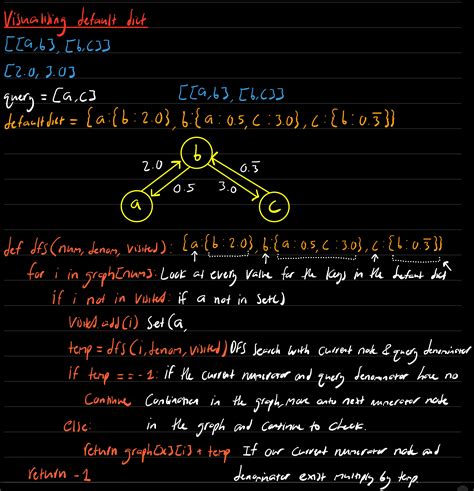 Visualising default dict
[[a,b], [b,c]]
[2.0, 3.0]
query = [a,c] [[a,b], [b,c]]
defaultdict = {a:{b:2.0}, b:{a:0.5, c:3.0}, c:{b:0.3̅}}
b
2.0 0.3̅
0.5 3.0
a c
def dfs(num, denom, visited): {a:{b:2.0}, b:{a:0.5, c:3.0}, c:{b:0.3̅}}
for i in graph[num]: Look at every value for the keys in the default dict
if i not in visited: if a not in Set()
visited.add(i) Set(a,
temp = dfs(i, denom, visited) DFS search with current node & query denominator
if temp == -1: if the current numerator and query denominator have no
continue Combination in the graph, move onto next numerator node
else: in the graph and continue to check.
return graph[x][i] * temp If our current numerator node and
return -1 denominator exist multiply by temp.